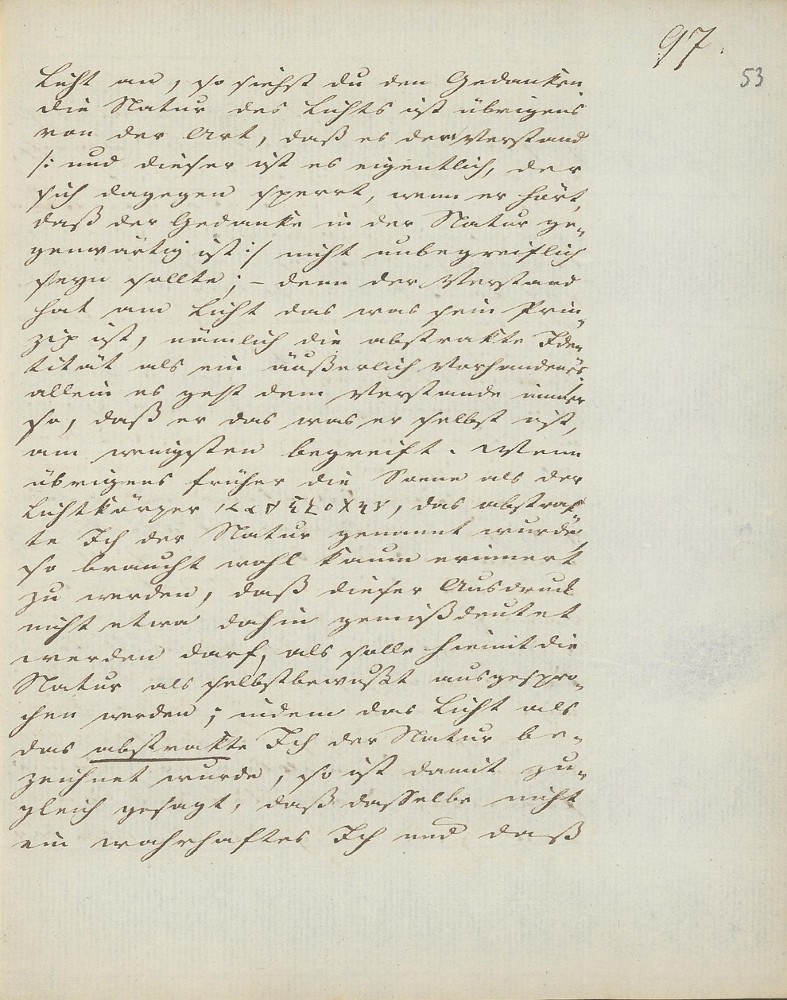 97.
53
Licht an, so siehst du den Gedanken
die Natur des Lichts ist übrigens
von der Art, daß es der Verstand
/: und dieser ist es eigentlich, der
sich dagegen sperrt, wenn er hört,
daß der Gedanke in der Natur ge„
genwärtig ist :/ nicht unbegreiflich
seyn sollte; – denn der Verstand
hat am Licht das was sein Prin„
zip ist, nämlich die abstrakte Iden„
tität als ein äußerlich Vorhandenes
allein es geht dem Verstande immer
so, daß er das was er selbst ist,
am wenigsten begreift. Wenn
übrigens früher die Sonne als der
Lichtkörper , das abstrak„
te Ich der Natur genannt wurde,
so braucht wohl kaum erinnert
zu werden, daß dieser Ausdruck
nicht etwa dahin gemißdeutet
werden darf, als solle hiemit die
Natur als selbstbewußt ausgespro„
chen werden; indem das Licht als
das abstrakte Ich der Natur be„
zeichnet wurde, so ist damit zu„
gleich gesagt, daß dasselbe nicht
ein wahrhaftes Ich und daß